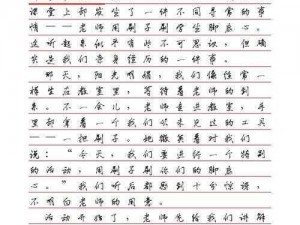 课堂上却发生了一件不同寻常的事
情——老师用刷子刷学生脚底心。
这听起来似乎有些不可思议，但确
实是我们亲身经历的一件事。
那天，阳光明媚，我们像往常一
样坐在教室里，等待着老师的到
来。不一会儿，老师走进教室，手
里却拿着一个我们从未见过的工具
———一把刷子。她微笑着对我们
说：“今天，我们要进行一个特别
的活动，用刷子刷你们的脚底
心。”我们听后都感到十分惊讶，
不明白老师的用意。
活动开始了，老师先给我们讲解